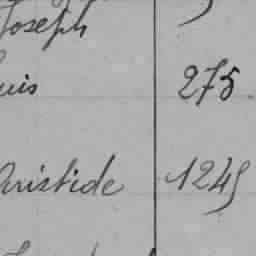 Joseph
uis 275.
Aristide 1245